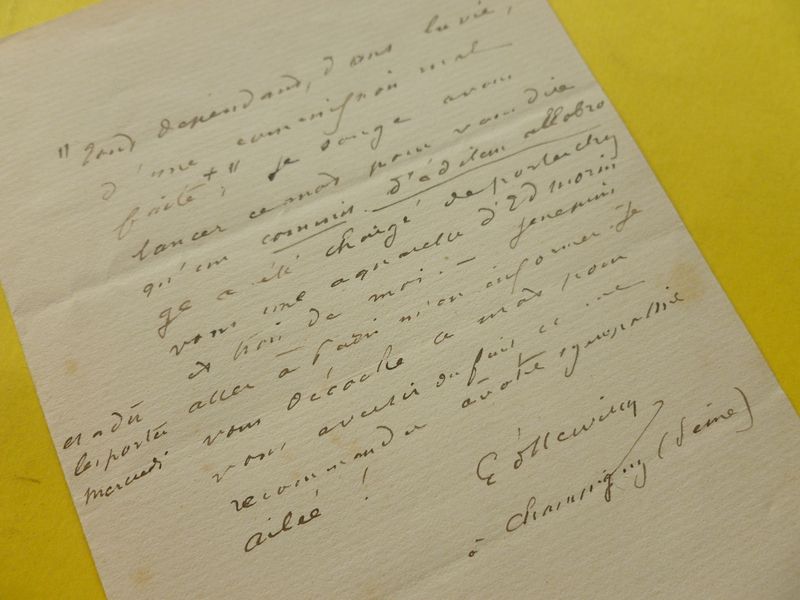 "Tout dépendant, dans la vie,
d'une commission mal
faite +" je songe avant
lancer ce mot pour vous dire
qu'un commis d'édition allobro
ge a été chargé de porter chez
vous une aquarelle d'Ed Morin
et trois de moi. — Je ne puis
aller à Paris m'en informer. Je
vous décoche ce mot pour
vous avertir du fait et me
recommander à votre sympathie
ailée !
et a dû
les porter
mercredi
à Champigny (Seine)